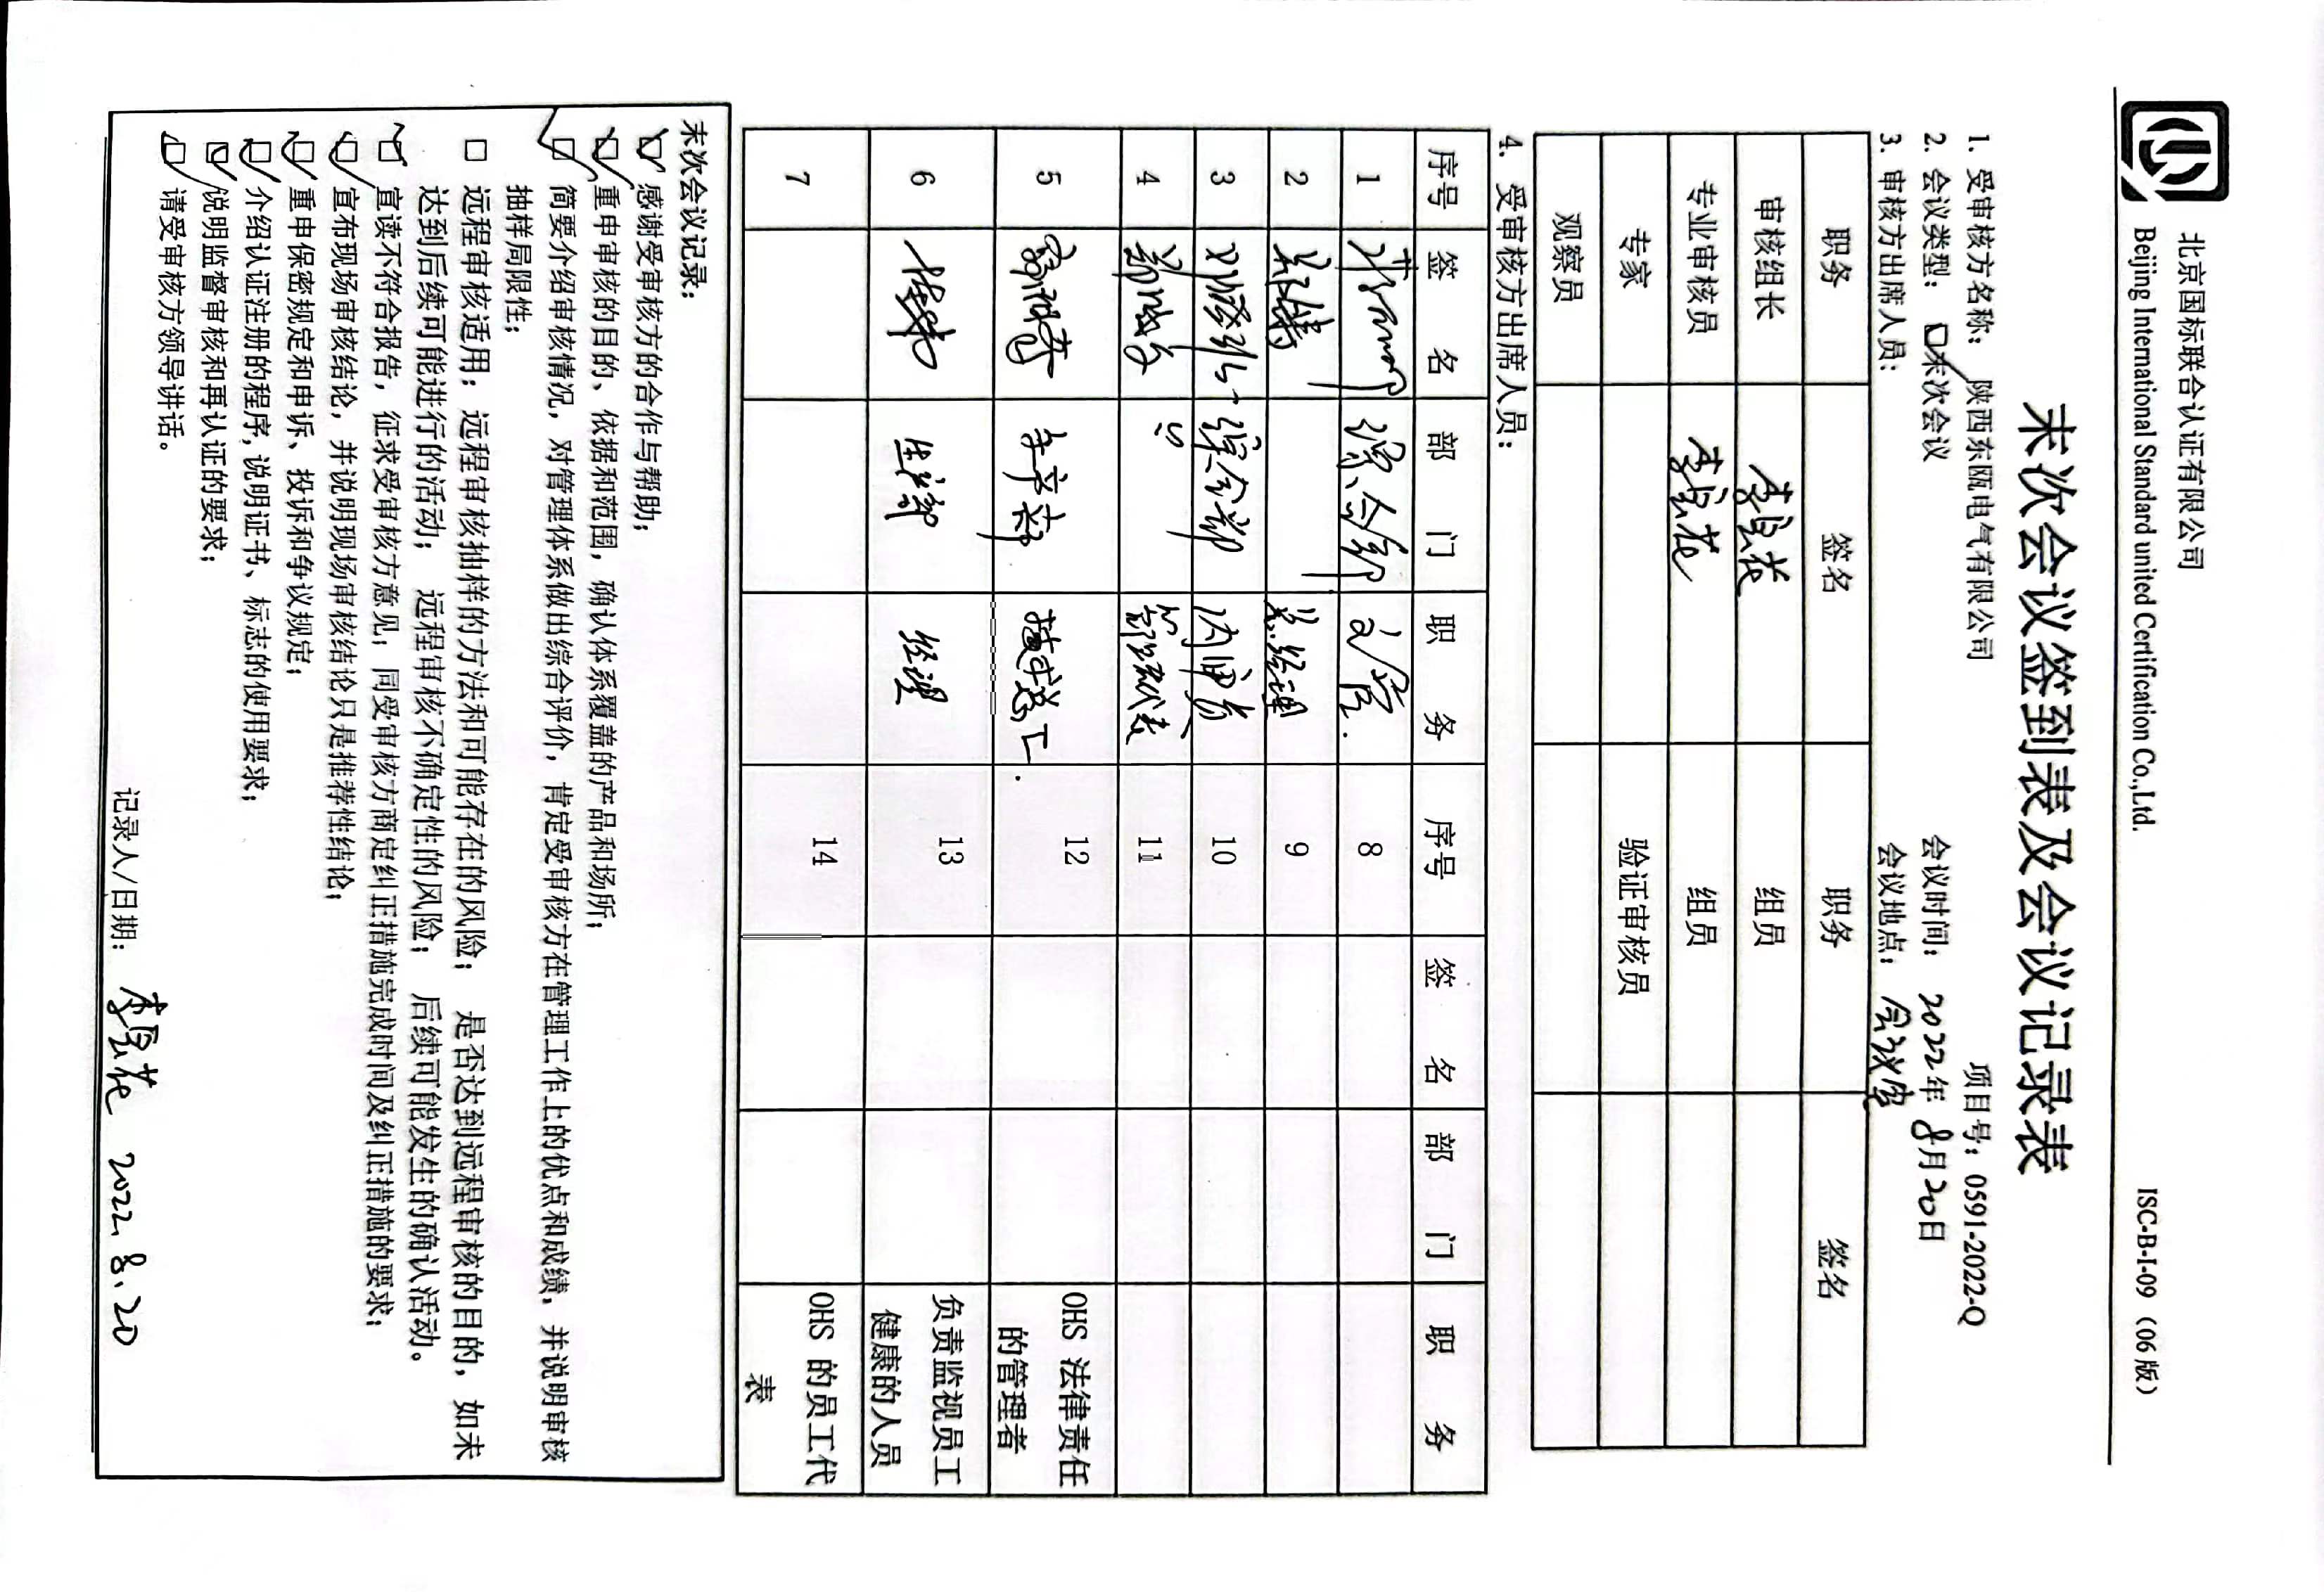 北京国标联合认证有限公司
Beijing International Standard united Certification Co.,Ltd.
ISC-B-I-09（06 版）
末次会议签到表及会议记录表
1. 受审核方名称： 陕西东瓯电气有限公司 项目号：0591-2022-Q
2. 会议类型： □末次会议 会议时间： 2022年 8月20日
3. 审核方出席人员： 会议地点： 会议室
职务 签名 职务 签名
审核组长 组员
专业审核员 组员
专家 验证审核员
观察员
4. 受审核方出席人员：
序号 签 名 部 门 职 务 序号 签 名 部 门 职 务
1 综合部 文管 8
2 总经理 9
3 综合部 内审员 10
4 〃 管理代表 11
5 生产部 技术总工 12 OHS 法律责任
的管理者
6 生产部 经理 13 负责监视员工
健康的人员
7 14 OHS 的员工代
表
末次会议记录：
□ 感谢受审核方的合作与帮助；
□ 重申审核的目的、依据和范围，确认体系覆盖的产品和场所；
□ 简要介绍审核情况，对管理体系做出综合评价，肯定受审核方在管理工作上的优点和成绩，并说明审核
抽样局限性；
□ 远程审核适用：远程审核抽样的方法和可能存在的风险； 是否达到远程审核的目的，如未
达到后续可能进行的活动； 远程审核不确定性的风险； 后续可能发生的确认活动。
□ 宣读不符合报告，征求受审核方意见；同受审核方商定纠正措施完成时间及纠正措施的要求；
□ 宣布现场审核结论，并说明现场审核结论只是推荐性结论；
□ 重申保密规定和申诉、投诉和争议规定；
□ 介绍认证注册的程序，说明证书、标志的使用要求；
□ 说明监督审核和再认证的要求；
□ 请受审核方领导讲话。
记录人/日期： 2022.8.20